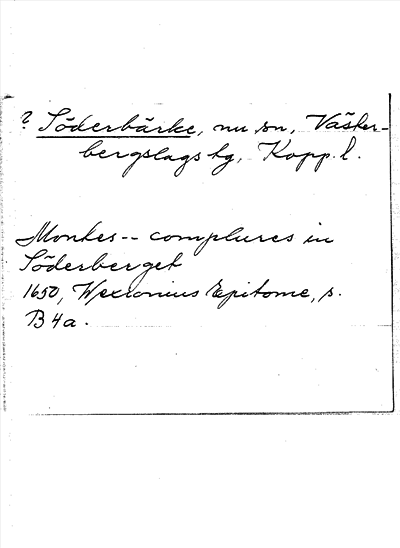 ? Söderbärke, nu sn, Väster-
bergslags hg, Kopp. l.
Montes -- complures in
Söderberget
1650, Wexionius Epitome, s.
B 4a.